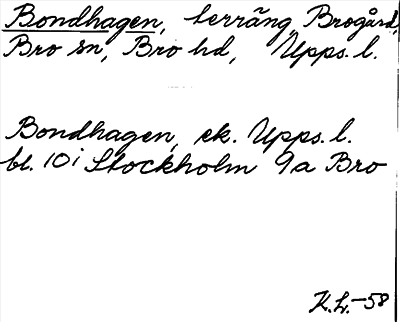 Bondhagen, terräng, Brogård,
Bro sn, Bro hd, Upps. l.
Bondhagen, ek. Upps. l.
bl. 10 i Stockholm 9a Bro
K.L. -58